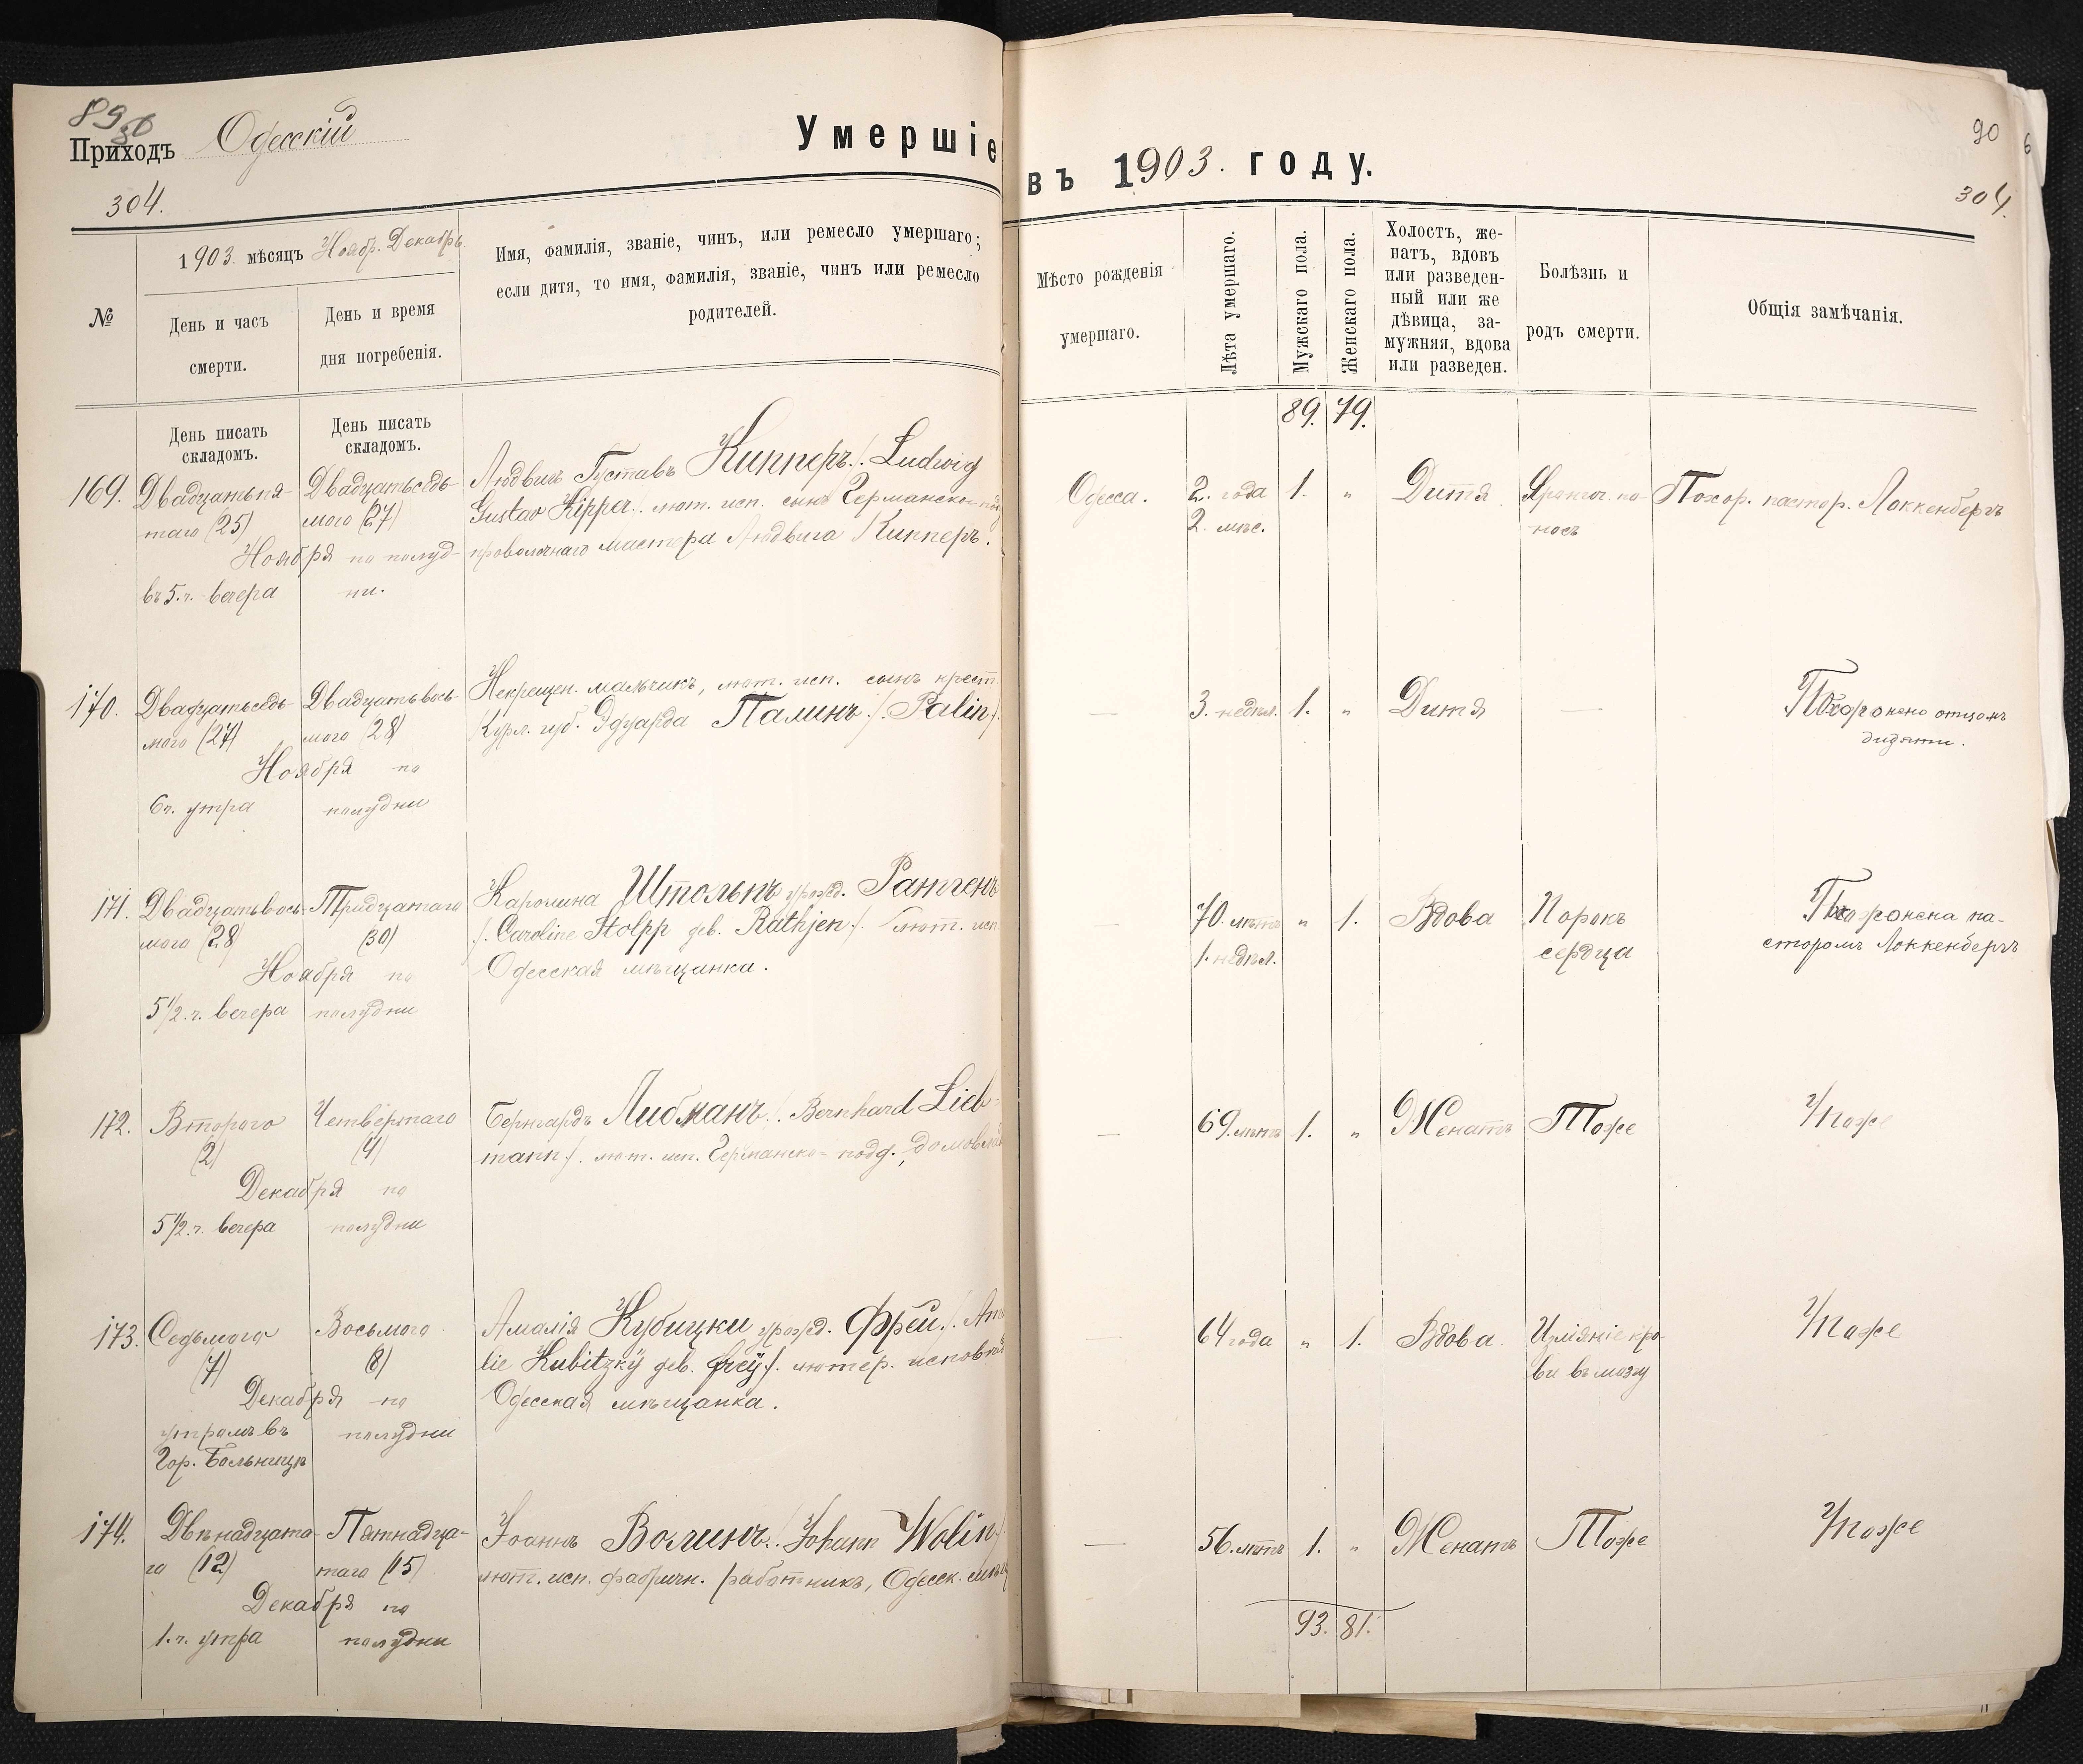 89
Приходъ Одесскій
Умершіе
въ 1903. году.
90
6
304.
304.
№
1903. мѣсяцъ Ноябр. Декабрь
День и часъ
смерти.
День и время
дня погребенія.
Имя, фамилія, званіе, чинъ, или ремесло умершаго;
если дитя, то имя, фамилія, званіе, чинъ или ремесло
родителей.
Мѣсто рожденія
умершаго.
Лѣта умершаго.
Мужскаго пола.
Женскаго пола.
Холостъ, же-
натъ, вдовъ
или разведен-
ный или же
дѣвица, за-
мужняя, вдова
или разведен.
Болѣзнь и
родъ смерти.
Общія замѣчанія.
День писать
складомъ.
День писать
складомъ.
89. 79.
169.
Двадцатьпя-
таго (25)
Ноября по полуд-
въ 5. ч. вечера
Двадцатьседь-
мого (27)
ни.
Людвигъ Густавъ Кипперъ /. Ludwig
Gustav Kipper ./. лют. исп. сынъ Германско-под
проволочнаго мастера Людвига Кипперъ.
Одесса.
2. года
2. мѣс.
1.
"
Дитя
по-
носъ
Похор. пастор. Локкенбергъ
170.
Двадцатьседь-
мого (27)
Ноября по
6 ч. утра
Двадцатьвось-
мого (28)
полудни
Некрещен. мальчикъ, лют. исп. сынъ крест.
Курл. губ. Эдуарда Палинъ /. Palin /.
—
3. недѣл.
1.
"
Дитя
—
Похоронено отцомъ
дидяти.
171.
Двадцатьвось-
мого (28)
Ноября по
5 1/2. ч. вечера
Тридцатаго
(30)
полудни
Каролина Штольпъ урожд. Ратгенъ
/. Caroline Stolpp geb. Rathjen /. лют. исп.
Одесская мѣщанка.
—
70. лѣтъ
1. недѣл.
"
1.
Вдова
Порокъ
сердца
Похоронена па-
сторомъ Локкенбергъ
172.
Второго
(2)
Декабря по
5 1/2. ч. вечера
Четвёртаго
(4)
полудни
Бернгардъ Либманъ /. Bernhard Lieb-
mann /. лют. исп. Германско- подд., домовлад
—
69. лѣтъ
1.
"
Женатъ
Тоже
Тоже
173.
Седьмого
(7)
Декабря по
утромъ въ
Гор. Больницѣ
Восьмого
(8)
полудни
Амалія Кубицки урожд. Фрей /. Ama
lie Kubitzkÿ geb. Freÿ /. лютер. исповѣд
Одесская мѣщанка.
—
64 года
"
1.
Вдова.
Изліяніе кро-
ви въ мозгу
Тоже
174.
Двѣнадцата-
го (12)
Декабря по
1. ч. утра
Пятнадца-
таго (15)
полудни
Іоаннъ Волинъ /. Johann Wolin /.
лют. исп. фабричн. работникъ, Одесск. мѣщ
—
56. лѣтъ
1.
"
Женатъ
Тоже
Тоже
93. 81.